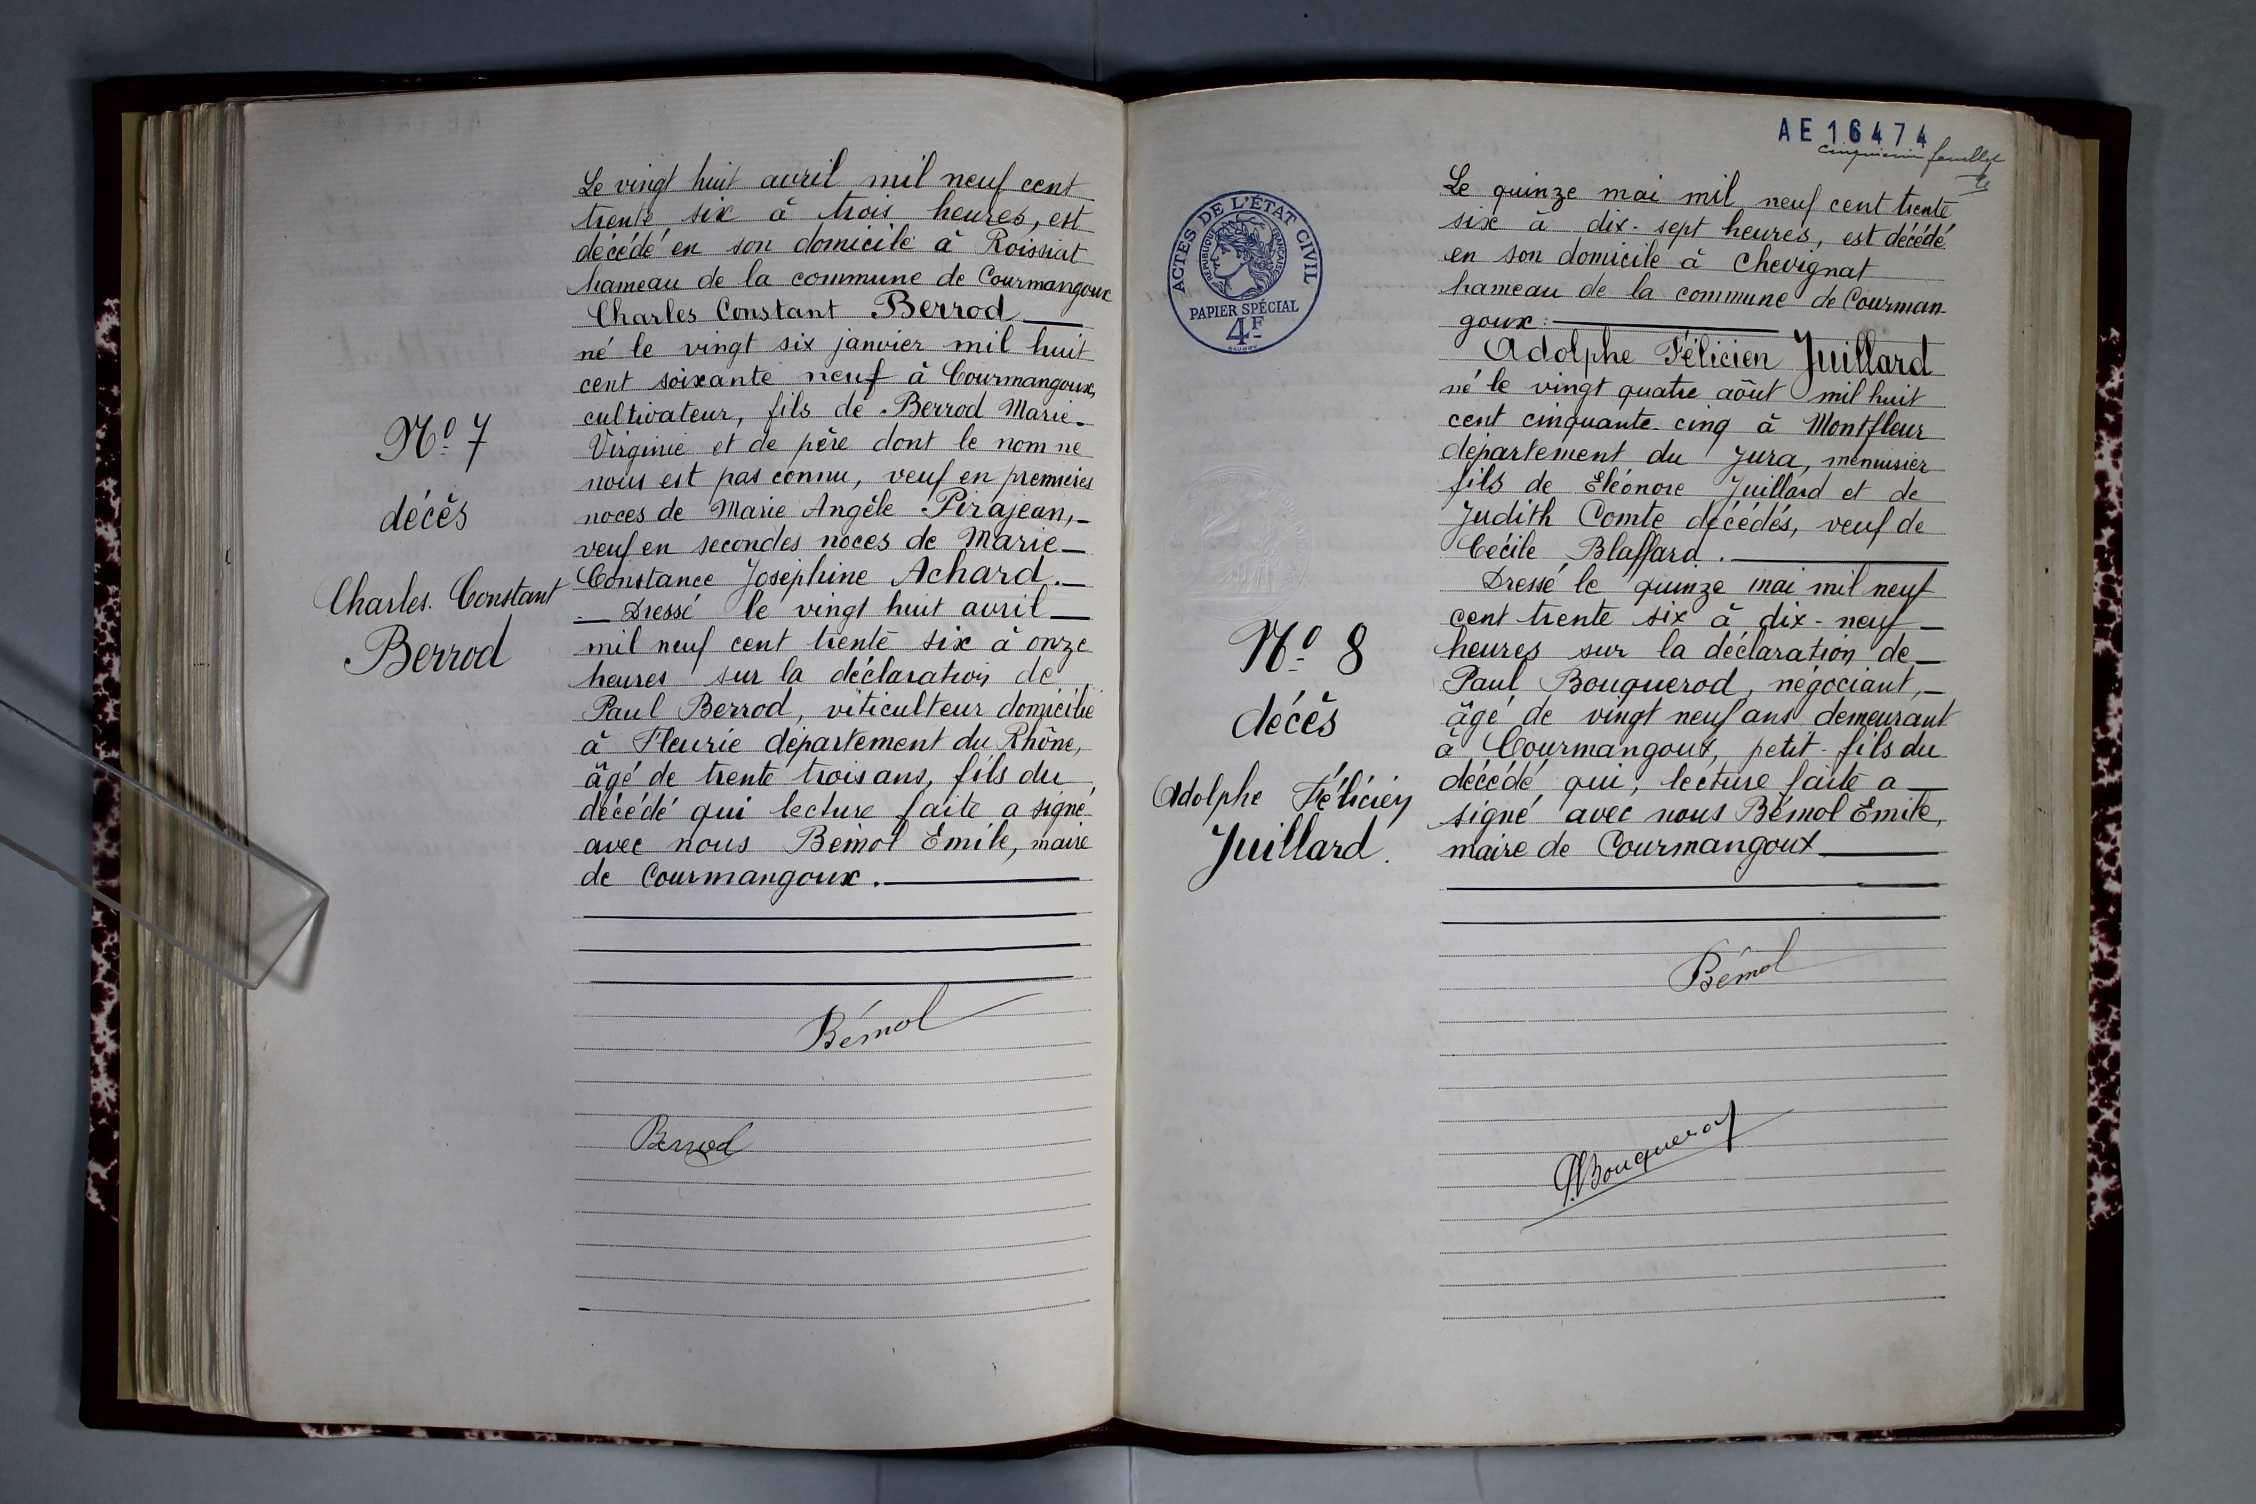 Le vingt huit avril mil neuf cent
trente six à trois heures, est
décédé en son domicile à Roissiat
hameau de la commune de Courmangoux
Charles Constant Berrod
né le vingt six janvier mil huit
cent soixante neuf à Courmangoux,
cultivateur, fils de Berrod Marie-
Virginie et de père dont le nom ne
nous est pas connu, veuf en premières
noces de Marie Angèle Pirajean,
veuf en secondes noces de Marie
Constance Joséphine Achard.
Dressé le vingt huit avril
mil neuf cent trente six à onze
heures sur la déclaration de
Paul Berrod, viticulteur domicilié
à Fleurie département du Rhône,
âgé de trente trois ans, fils du
décédé qui lecture faite a signé
avec nous Bémol Emile, maire
de Courmangoux.
N° 7
décès
Charles Constant
Berrod
Bémol
Berrod
AE16474
feuillet
ACTES DE L'ÉTAT CIVIL
RÉPUBLIQUE FRANÇAISE
PAPIER SPÉCIAL
4F
Le quinze mai mil neuf cent trente
six à dix-sept heures, est décédé
en son domicile à Chevignat
hameau de la commune de Courman-
goux:
Adolphe Félicien Juillard
né le vingt quatre août mil huit
cent cinquante cinq à Montfleur
département du Jura, menuisier
fils de Eléonore Juillard et de
Judith Comte décédés, veuf de
Cécile Blaffard.
Dressé le quinze mai mil neuf
cent trente six à dix-neuf
heures sur la déclaration de
Paul Bouquerod, négociant,
âgé de vingt neuf ans demeurant
à Courmangoux, petit-fils du
décédé qui, lecture faite a
signé avec nous Bémol Emile,
maire de Courmangoux
N° 8
décès
Adolphe Félicien
Juillard.
Bémol
P. Bouquerod